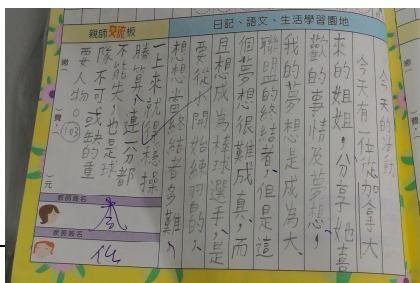 日記、語文、生活學習園地
親師交流板
今天的活動
今天有一位從加拿大
來的姐姐，分享她喜
歡的事情及夢想，
我的夢想是成為大
聯盟的終結者、但是這
個夢想很難成真，而
且想成為棒球選手，是
要從小開始練習的、
想想當終結者多難、
一上來就得
勝算、連一分都
不能失、也是球
隊不可或缺的重
要人物。
103
繳
費
元
教師簽名
家長簽名